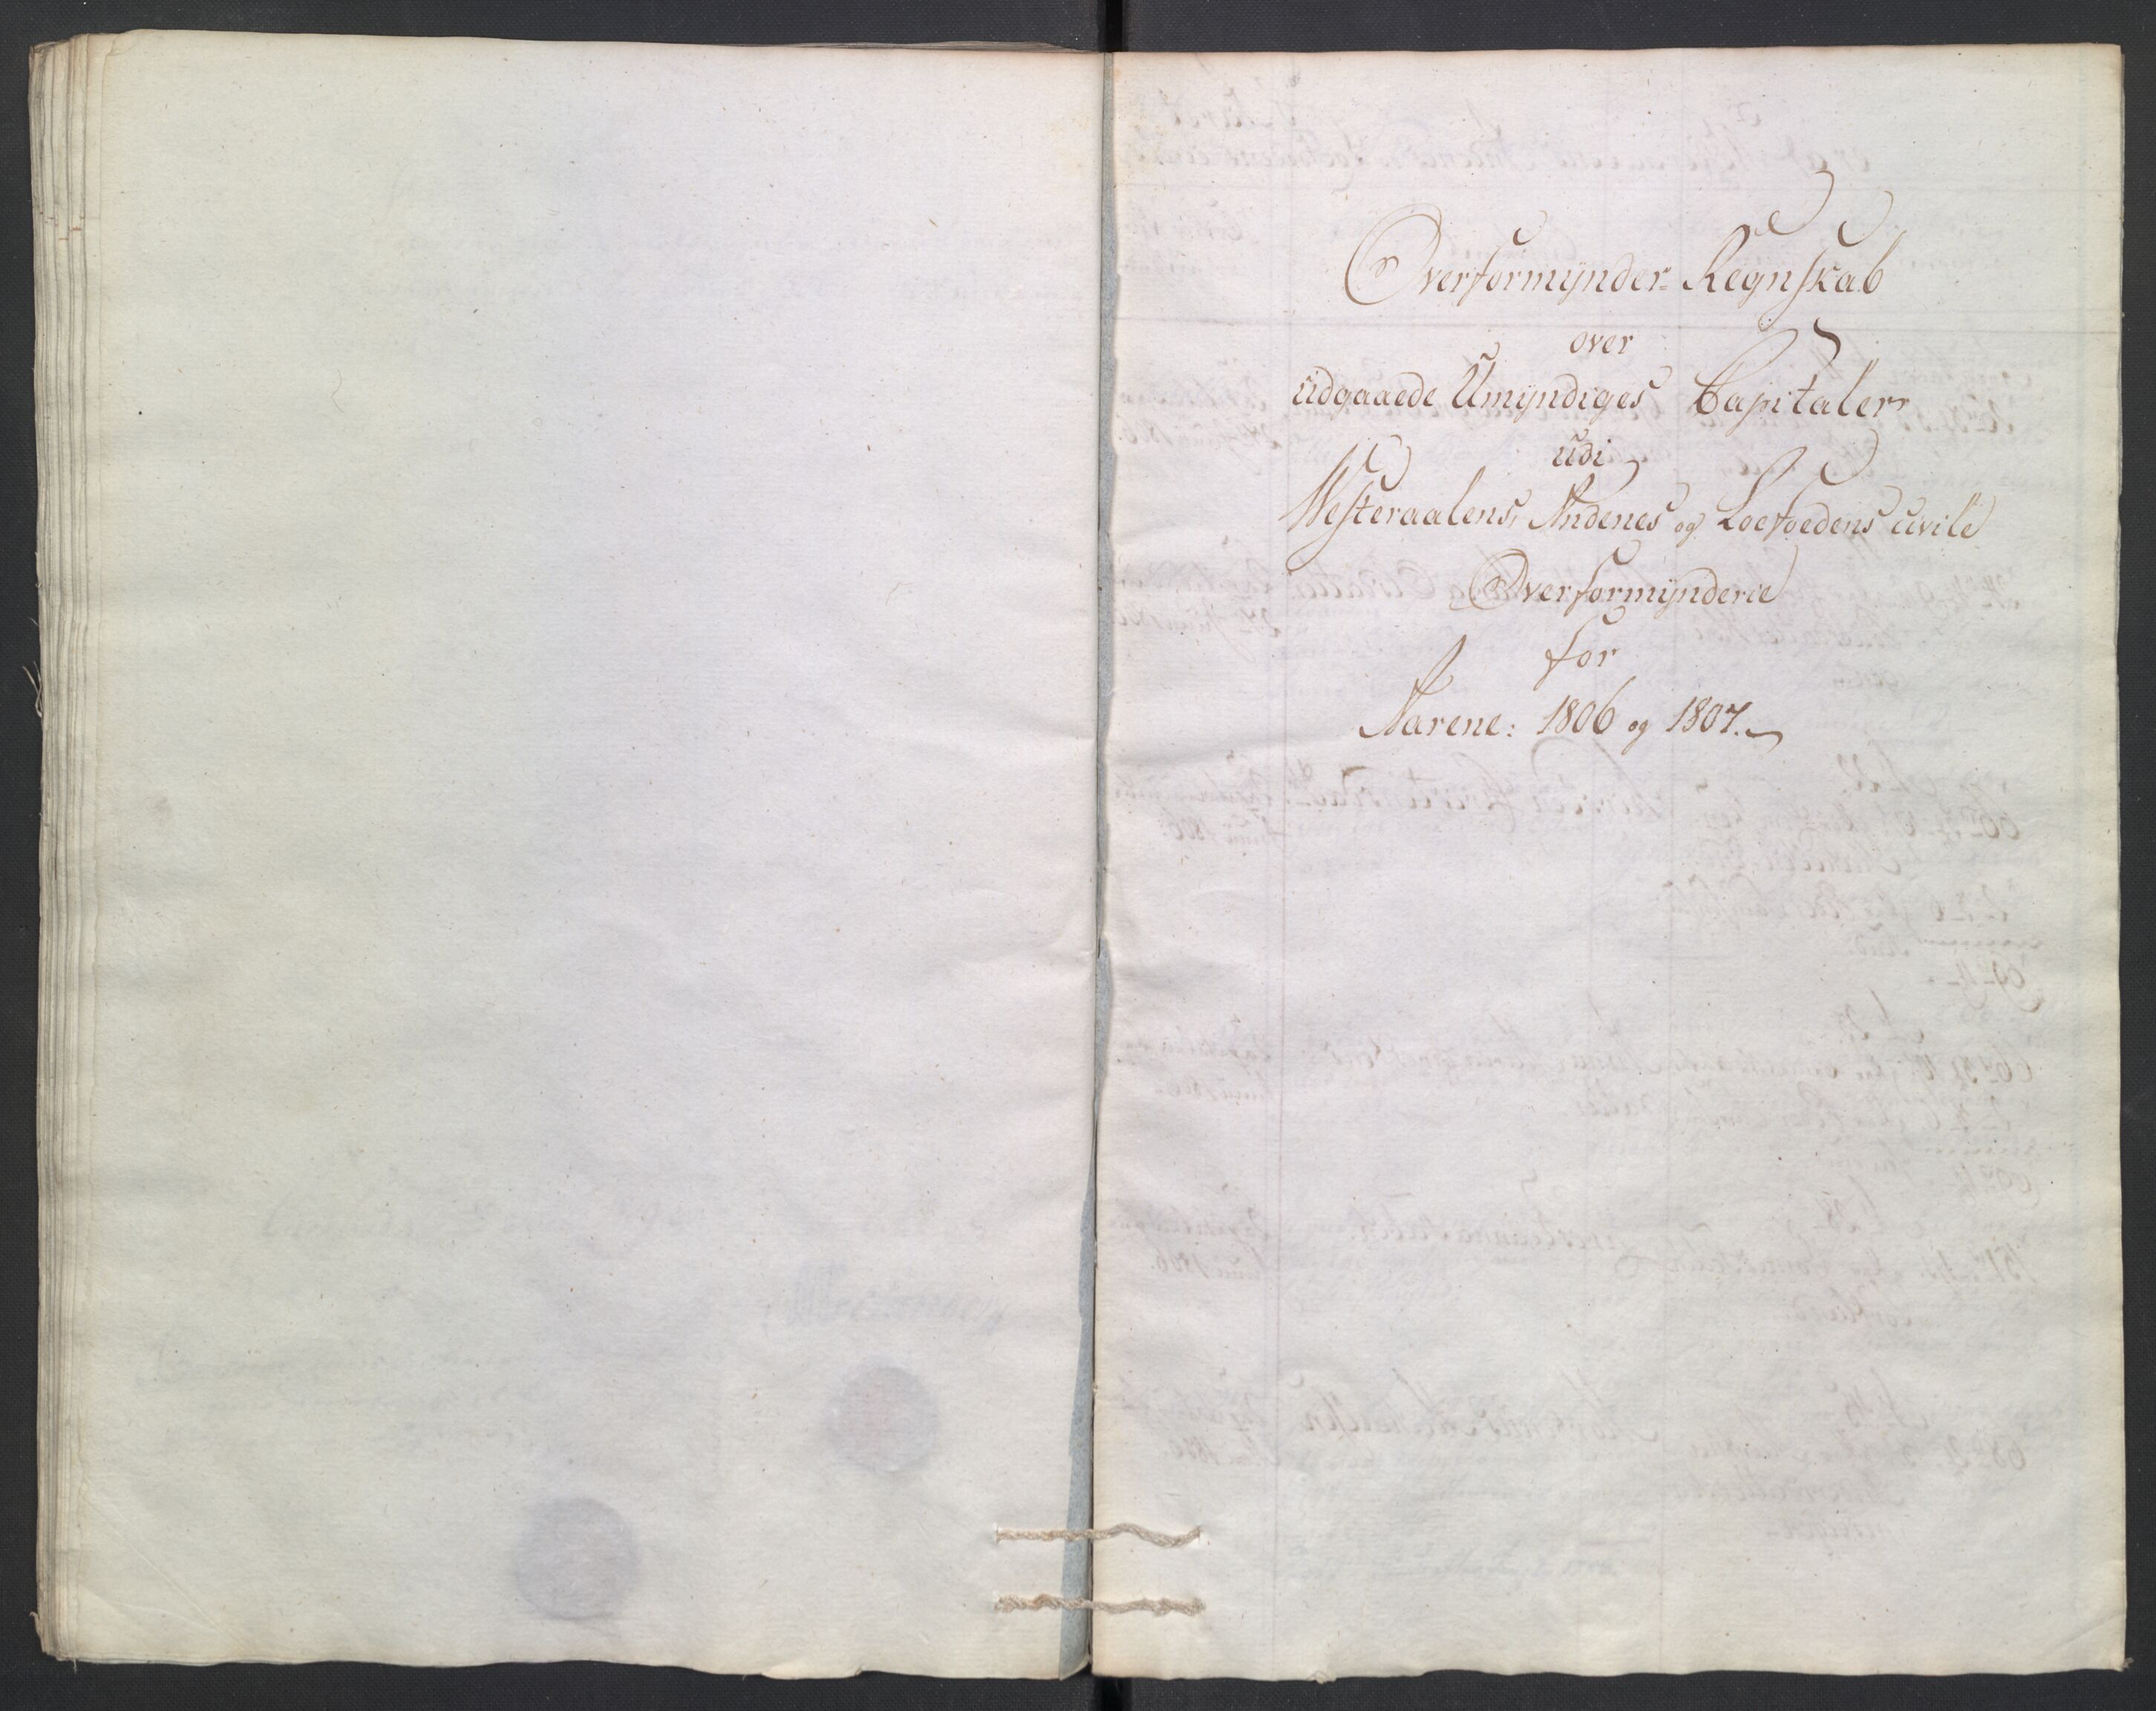 Overformynder-Regnskab
over
udgaaede Umyndiges Capitaler
udi
Westeraalens, Andenes og Loefoedens civile
Overformynderie
for
Aarene: 1806 og 1807.